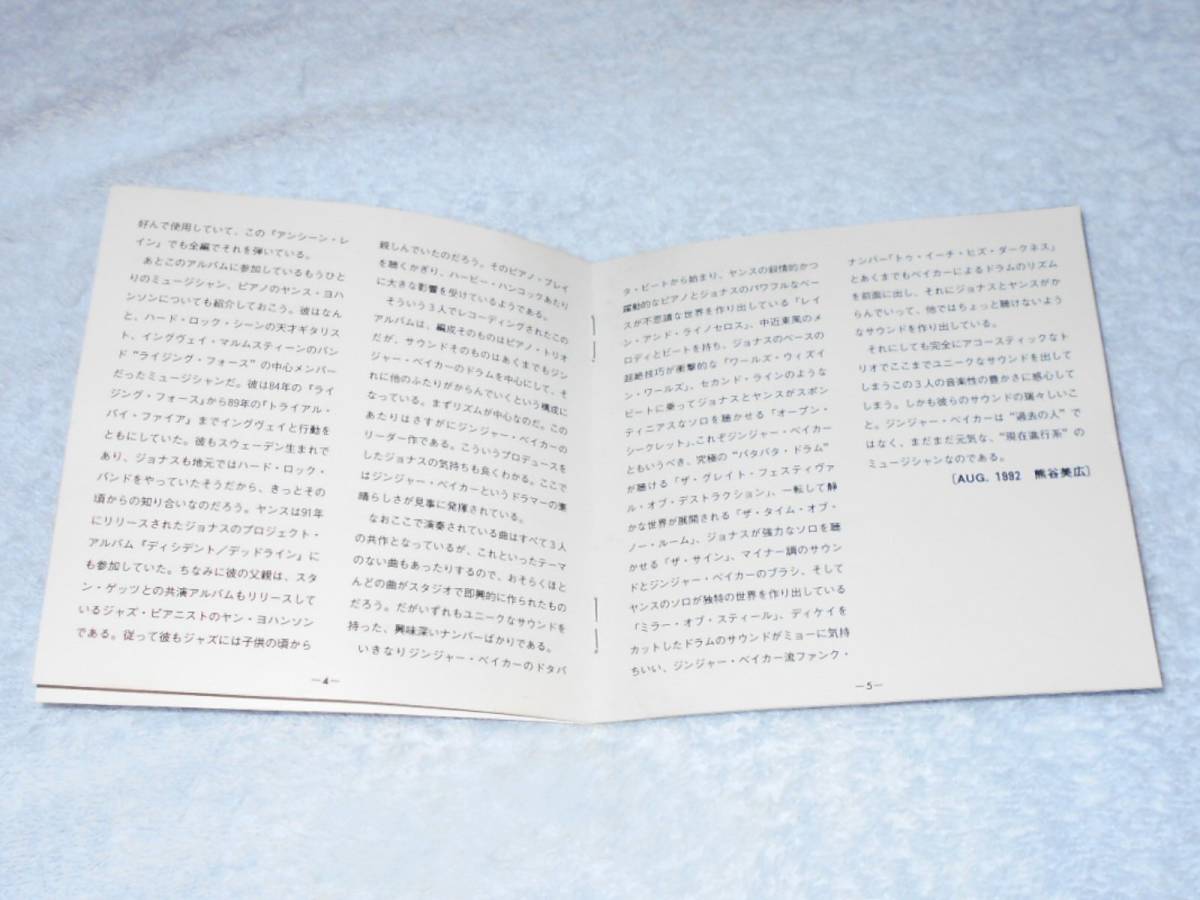 好んで使用していて、この『アンシーン・レ
イン』でも全編でそれを弾いている。
あとこのアルバムに参加しているもうひと
りのミュージシャン、ピアノのヤンス・ヨハ
ンソンについても紹介しておこう。彼はなん
と、ハード・ロック・シーンの天才ギタリス
ト、イングヴェイ・マルムスティーンのバン
ド“ライジング・フォース”の中心メンバー
だったミュージシャンだ。彼は84年の『ライ
ジング・フォース』から89年の『トライアル・
バイ・ファイア』までイングヴェイと行動を
ともにしていた。彼もスウェーデン生まれで
あり、ジョナスも地元ではハード・ロック・
バンドをやっていたそうだから、きっとその
頃からの知り合いなのだろう。ヤンスは91年
にリリースされたジョナスのプロジェクト・
アルバム『ディシデント／デッドライン』に
も参加していた。ちなみに彼の父親は、スタ
ン・ゲッツとの共演アルバムもリリースして
いるジャズ・ピアニストのヤン・ヨハンソン
である。従って彼もジャズには子供の頃から
親しんでいたのだろう。そのピアノ・プレイ
を聴くかぎり、ハービー・ハンコックあたり
に大きな影響を受けているようである。
そういう3人でレコーディングされたこの
アルバムは、編成そのものはピアノ・トリオ
だが、サウンドそのものはあくまでもジン
ジャー・ベイカーのドラムを中心にして、そ
れに他のふたりがからんでいくという構成に
なっている。まずリズムが中心なのだ。この
あたりはさすがにジンジャー・ベイカーの
リーダー作である。こういうプロデュースを
したジョナスの気持ちも良くわかる。ここで
はジンジャー・ベイカーというドラマーの素
晴らしさが見事に発揮されている。
なおここで演奏されている曲はすべて3人
の共作となっているが、これといったテーマ
のない曲もあったりするので、おそらくほと
んどの曲がスタジオで即興的に作られたもの
だろう。だがいずれもユニークなサウンドを
持った、興味深いナンバーばかりである。
いきなりジンジャー・ベイカーのドタバ
―4―
タ・ビートから始まり、ヤンスの叙情的かつ
躍動的なピアノとジョナスのパワフルなベー
スが不思議な世界を作り出している「レイ
ン・アンド・ライノセロス」、中近東風のメ
ロディとビートを持ち、ジョナスのベースの
超絶技巧が衝撃的な「ワールズ・ウィズイ
ン・ワールズ」、セカンド・ラインのような
ビートに乗ってジョナスとヤンスがスポン
ティニアスなソロを聴かせる「オープン・
シークレット」、これぞジンジャー・ベイカー
ともいうべき、究極の“バタバタ・ドラム”
が聴ける「ザ・グレイト・フェスティヴァ
ル・オブ・デストラクション」、一転して静
かな世界が展開される「ザ・タイム・オブ・
ノー・ルーム」、ジョナスが強力なソロを聴
かせる「ザ・サイン」、マイナー調のサウン
ドとジンジャー・ベイカーのブラシ、そして
ヤンスのソロが独特の世界を作り出している
「ミラー・オブ・スティール」、ディケイを
カットしたドラムのサウンドがミョーに気持
ちいい、ジンジャー・ベイカー流ファンク・
ナンバー「トゥ・イーチ・ヒズ・ダークネス」
とあくまでもベイカーによるドラムのリズム
を前面に出し、それにジョナスとヤンスがか
らんでいって、他ではちょっと聴けないよう
なサウンドを作り出している。
それにしても完全にアコースティックなト
リオでここまでユニークなサウンドを出して
しまうこの3人の音楽性の豊かさに感心して
しまう。しかも彼らのサウンドの瑞々しいこ
と。ジンジャー・ベイカーは“過去の人”で
はなく、まだまだ元気な、“現在進行系”の
ミュージシャンなのである。
〔AUG. 1992 熊谷美広〕
―5―